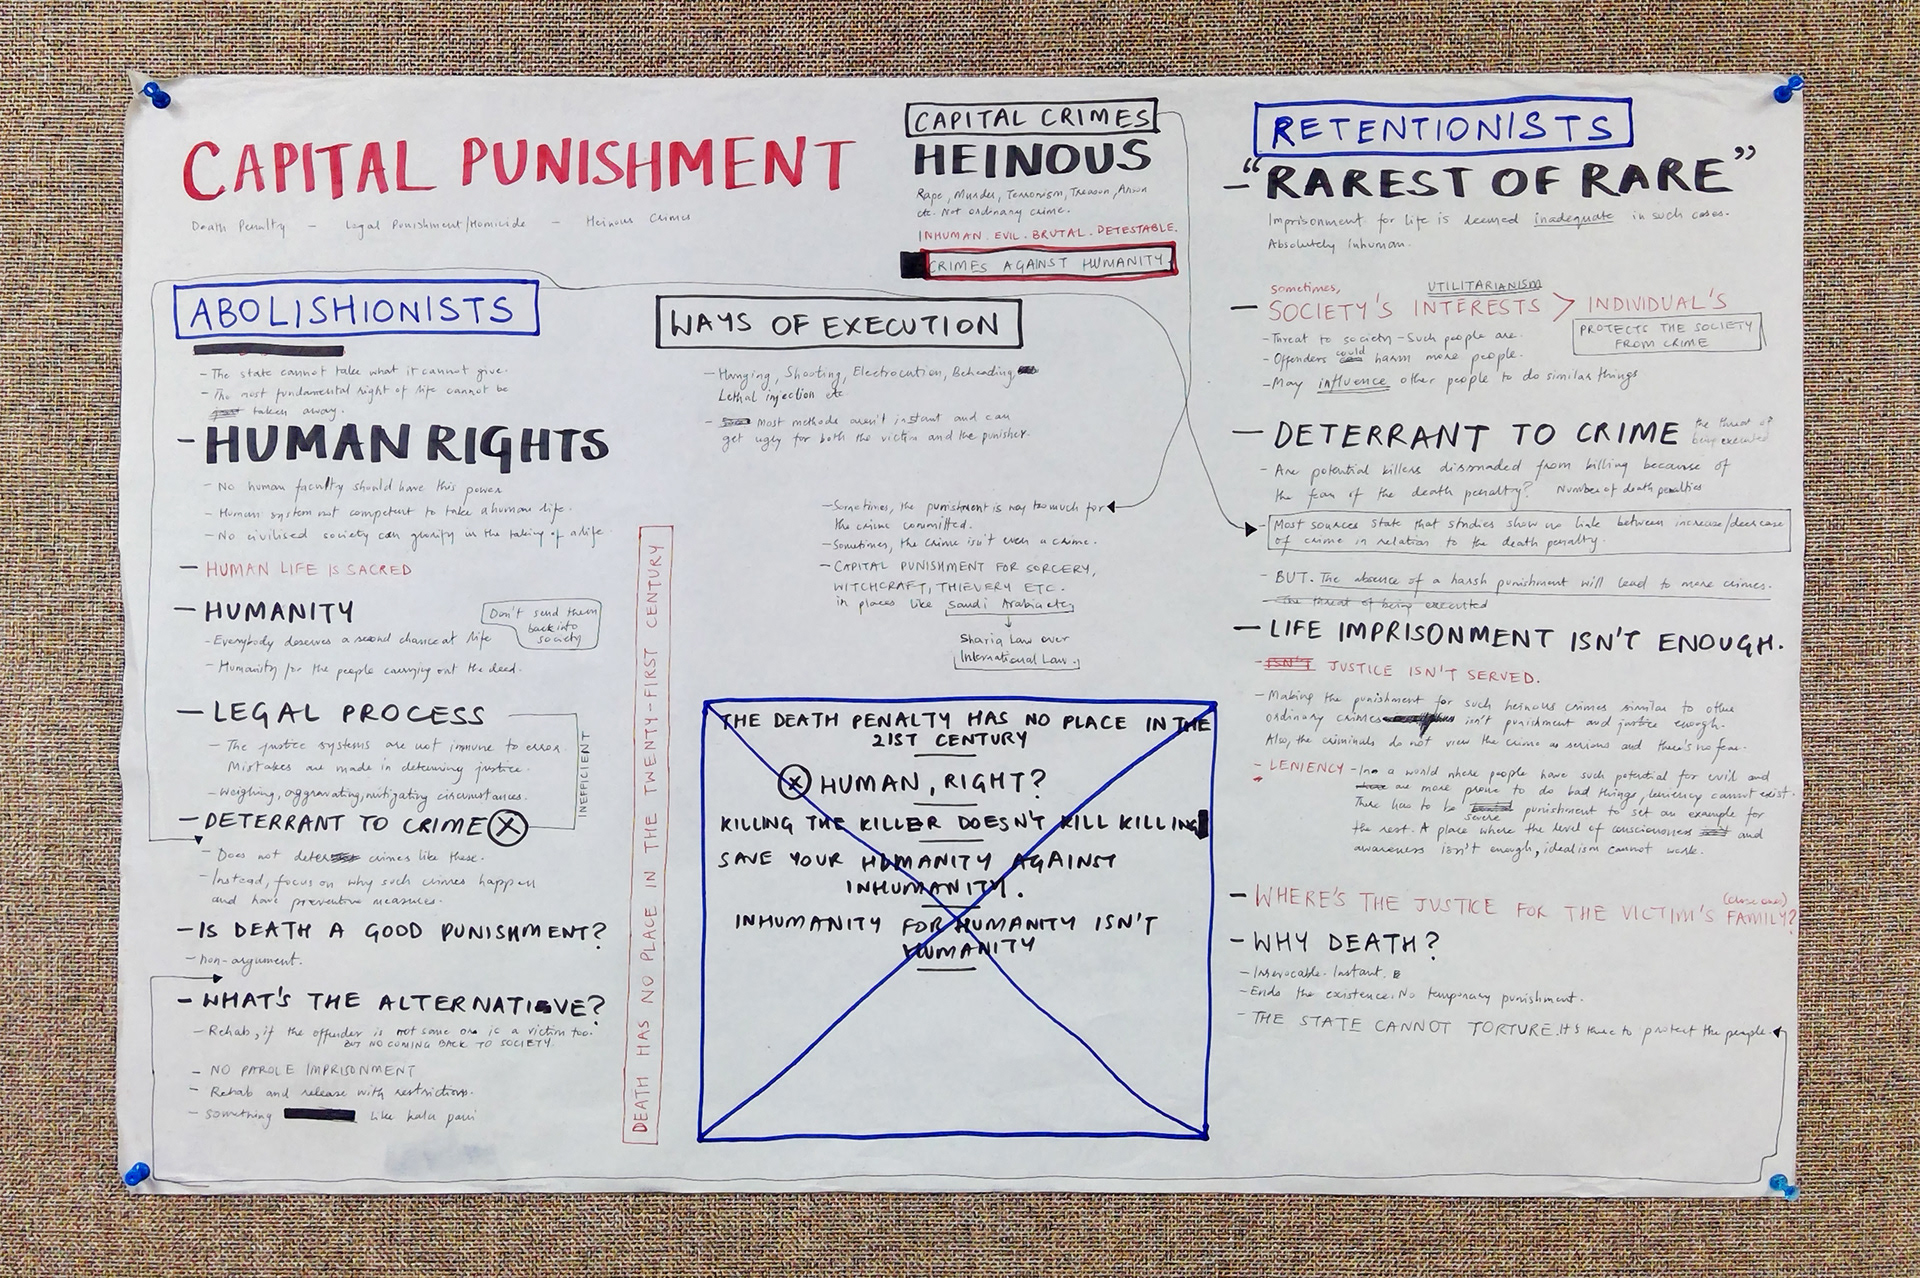 CAPITAL PUNISHMENT
Death Penalty — Legal Punishment/Homicide — Heinous Crimes
CAPITAL CRIMES
HEINOUS
Rape, Murder, Terrorism, Treason, Arson
etc. Not ordinary crime.
INHUMAN. EVIL. BRUTAL. DETESTABLE.
CRIMES AGAINST HUMANITY.
ABOLISHIONISTS
- The state cannot take what it cannot give.
- The most fundamental right of life cannot be
taken away.
- HUMAN RIGHTS
- No human faculty should have this power
- Human system not competent to take a human life.
- No civilised society can glorify in the taking of a life
- HUMAN LIFE IS SACRED
- HUMANITY
- Everybody deserves a second chance at life
Don't send them
back into
society
- Humanity for the people carrying out the deed.
- LEGAL PROCESS
- The justice systems are not immune to error.
Mistakes are made in determing justice.
- Weighing, aggravating, mitigating circumstances.
INEFFICIENT
- DETERRANT TO CRIME X
- Does not deter crimes like these.
- Instead, focus on why such crimes happen
and have preventive measures.
- IS DEATH A GOOD PUNISHMENT?
- non-argument.
- WHAT'S THE ALTERNATIVE?
- Rehab, if the offender is not sane one is a victim too.
BUT NO COMING BACK TO SOCIETY
- NO PAROLE IMPRISONMENT
- Rehab and release with restrictions.
- Something like kala pani
DEATH HAS NO PLACE IN THE TWENTY-FIRST CENTURY
WAYS OF EXECUTION
- Hanging, Shooting, Electrocution, Beheading,
Lethal injection etc
- Most methods aren't instant and can
get ugly for both the victim and the punisher.
- Sometimes, the punishment is way too much for
the crime committed.
- Sometimes, the crime isn't even a crime.
- CAPITAL PUNISHMENT FOR SORCERY,
WITCHCRAFT, THIEVERY ETC.
in places like Saudi Arabia etc,
Sharia Law over
International Law.
THE DEATH PENALTY HAS NO PLACE IN THE
21ST CENTURY
X HUMAN, RIGHT?
KILLING THE KILLER DOESN'T KILL KILLING
SAVE YOUR HUMANITY AGAINST
INHUMANITY.
INHUMANITY FOR HUMANITY ISN'T
HUMANITY
RETENTIONISTS
- "RAREST OF RARE"
Imprisonment for life is deemed inadequate in such cases.
Absolutely inhuman.
sometimes, UTILITARIANISM
- SOCIETY'S INTERESTS > INDIVIDUAL'S
PROTECTS THE SOCIETY
FROM CRIME
- Threat to society - Such people are.
- Offenders could harm more people.
- May influence other people to do similar things
- DETERRANT TO CRIME the threat of
being executed
- Are potential killers dissuaded from killing because of
the fear of the death penalty? Number of death penalties
- Most sources state that studies show no link between increase/decrease
of crime in relation to the death penalty.
- BUT. The absence of a harsh punishment will lead to more crimes.
- The threat of being executed
- LIFE IMPRISONMENT ISN'T ENOUGH.
- ISN'T JUSTICE ISN'T SERVED.
- Making the punishment for such heinous crimes similar to other
ordinary crimes isn't punishment and justice enough.
Also, the criminals do not view the crime as serious and there's no fear.
- LENIENCY - In a world where people have such potential for evil and
are more prone to do bad things, leniency cannot exist.
There has to be severe punishment to set an example for
the rest. A place where the level of consciousness and
awareness isn't enough, idealism cannot work.
- WHERE'S THE JUSTICE FOR THE VICTIM'S (close ones) FAMILY?
- WHY DEATH?
- Irrevocable. Instant.
- Ends the existence. No temporary punishment.
- THE STATE CANNOT TORTURE. It's there to protect the people.